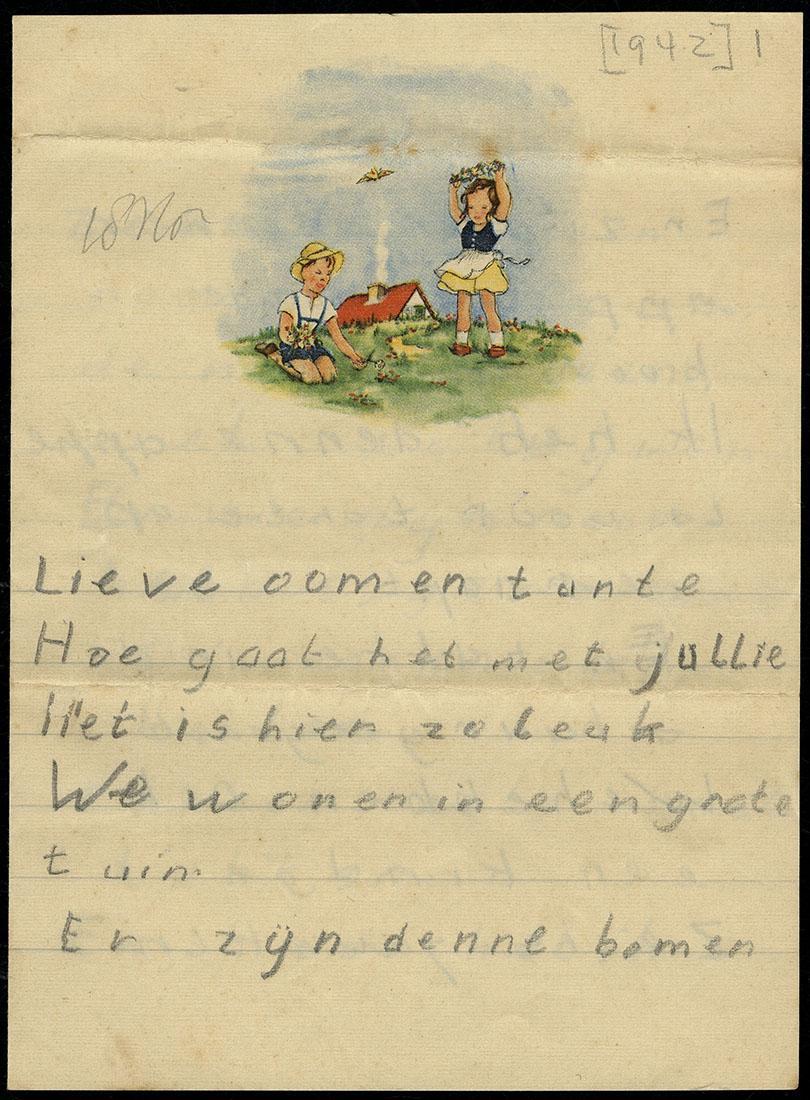 [1942] 1
18 Nov
Lieve oom en tante
Hoe gaat het met jullie
Het is hier zo leuk
We wonen in een grote
tuin
Er zijn denne bomen